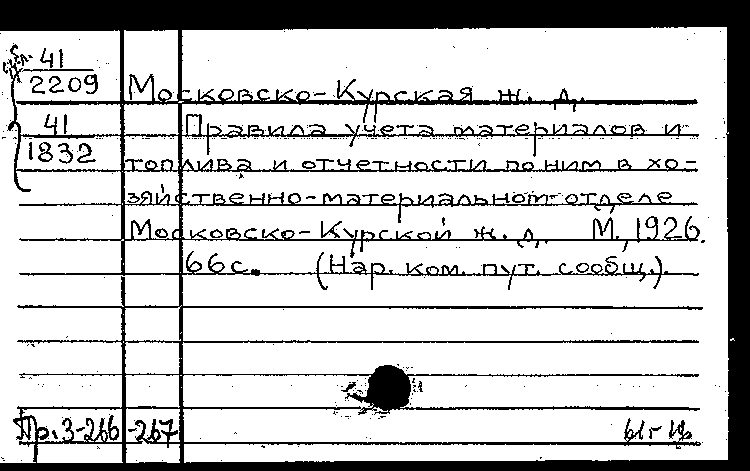 41
2209 Московско-Курская ж. д.
41
1832
Правила учета материалов и
топлива и отчетности по ним в хо-
зяйственно-материальном отделе
Московско-Курской ж. д. М., 1926.
66с. (Нар. ком. пут. сообщ.).
Пр. 3-266-267